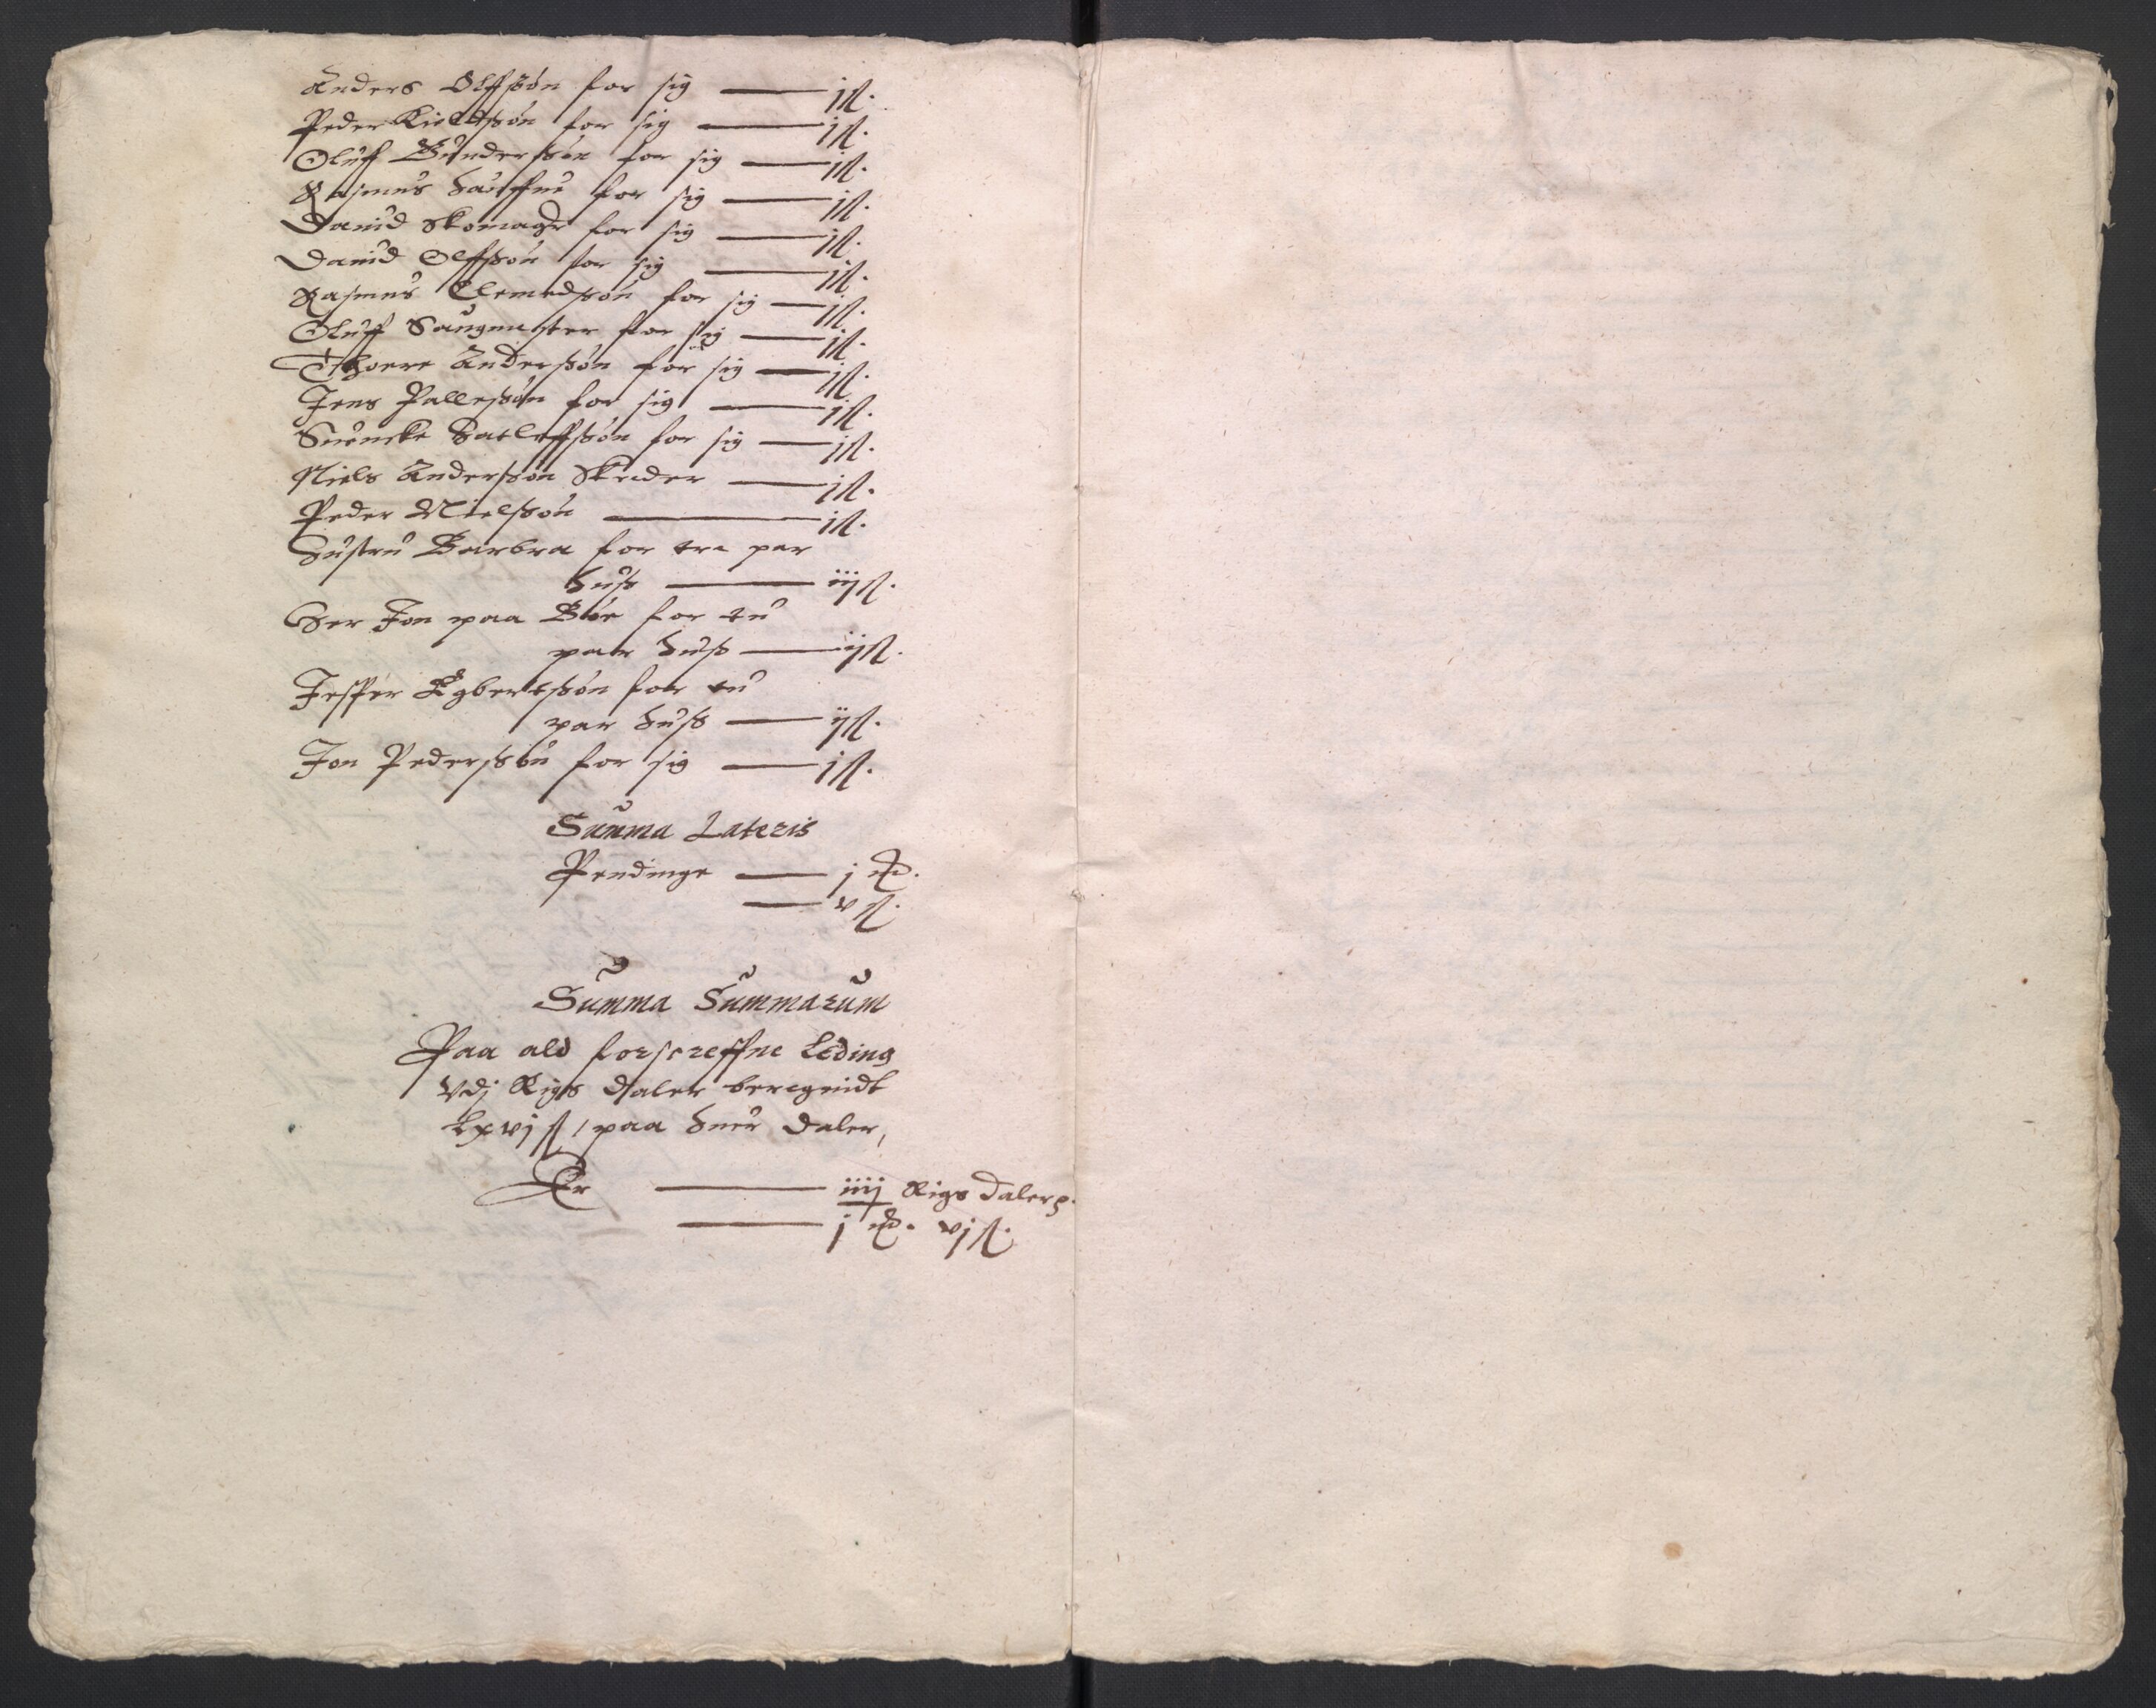 Anders Olffsøn for sig — j ß.
Peder Kieldsøn for sig — j ß.
Oluff Gundersøn for sig — j ß.
Rasmus for sig — j ß.
Dauid Skomager for sig — j ß.
Dauid Olffsøn for sig — j ß.
Rasmus Clemedsøn for sig — j ß.
Oluff Sangmester for sig — j ß.
Thoere Andersøn for sig — j ß.
Jens Pallesøn for sig — j ß.
Suencke for sig — j ß.
Niels Andersøn Skreder — j ß.
Peder Nielsøn — j ß.
Hustru Barbra for tre par
huß — iij ß.
Her Jon paa Bøe for tu
par huß — ij ß.
Jesper Egbertsøn for tu
par huß — ij ß.
Jon Pedersøn for sig — j ß.
Summa Lateris
Pendinge — j mk.
— v ß.
Summa Summarum
Paa ald forscreffne Leding
Vdj Rigs daler beregnidt
Lxvj ß / paa huer daler,
Er — iiij Rigs daler
— j mk. vj ß.